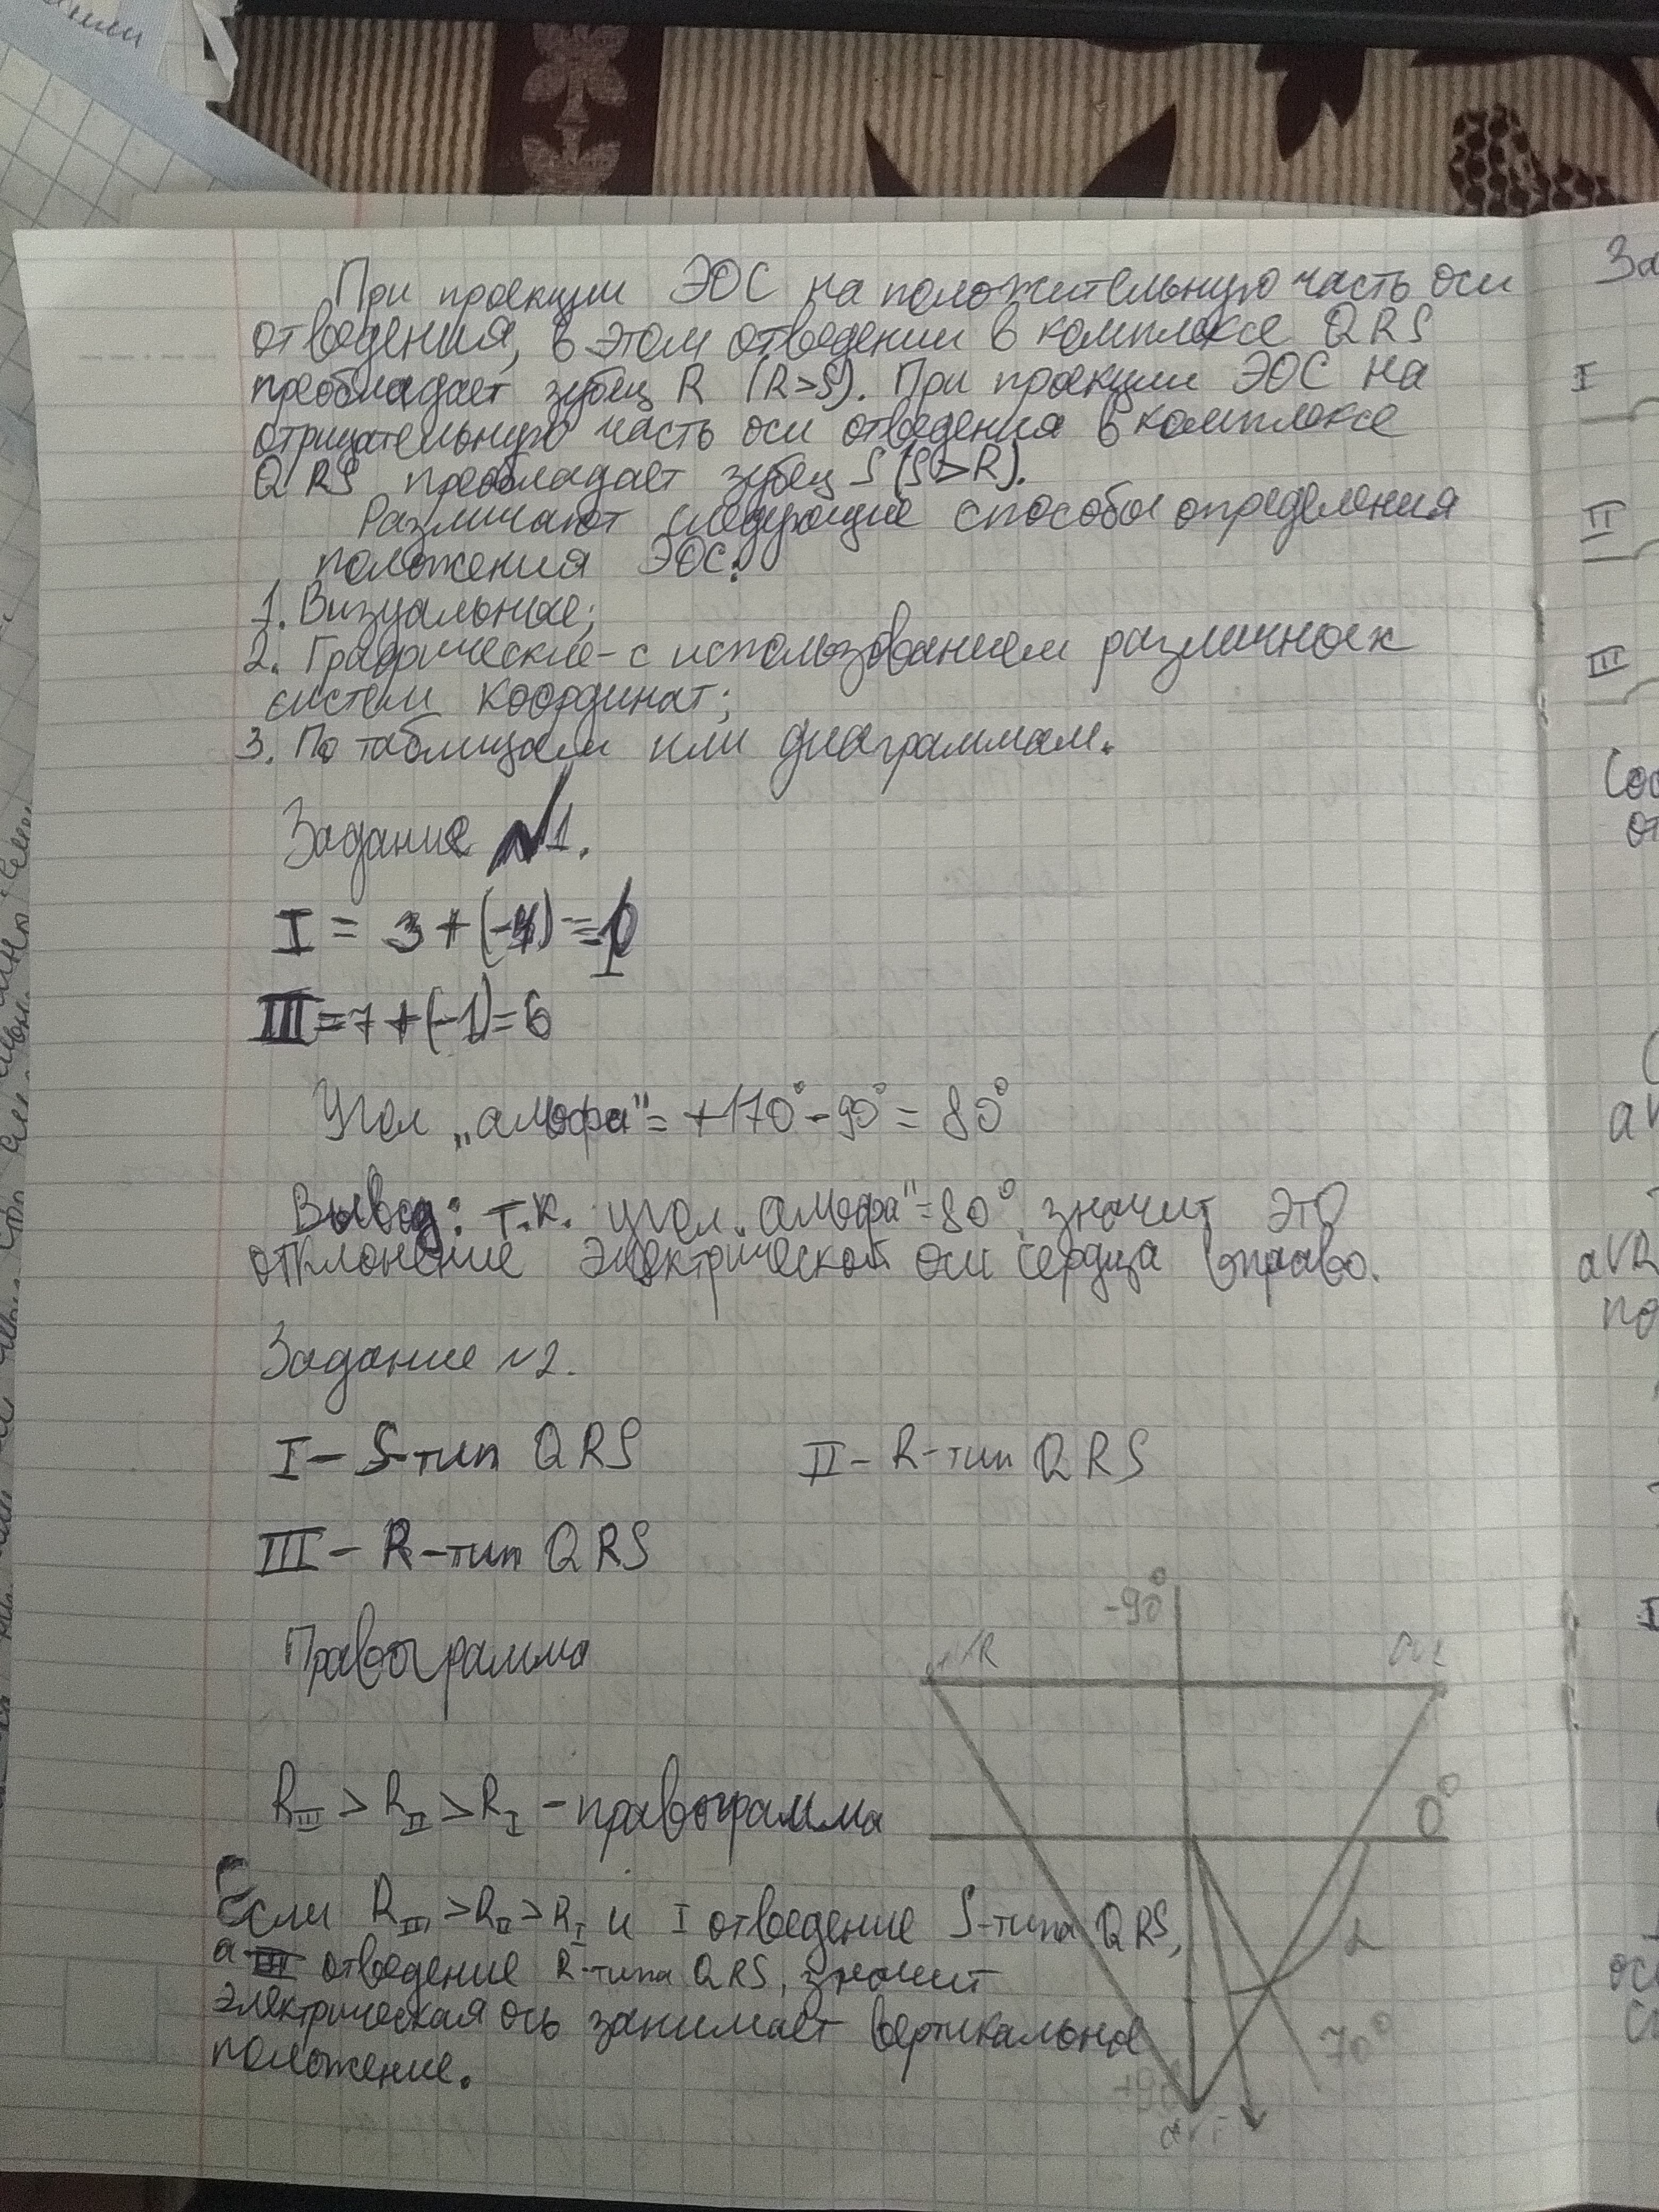 При проекции ЭОС на положительную часть оси
отведения, в этом отведении в комплексе QRS
преобладает зубец R (R>S). При проекции ЭОС на
отрицательную часть оси отведения в комплексе
QRS преобладает зубец S (S>R).
Различают следующие способы определения
положения ЭОС:
1. Визуальные;
2. Графические - с использованием различных
систем координат;
3. По таблицам или диаграммам.
Задание №1.
I = 3 + (-4) =
III = 7 + (-1) = 6
Угол "альфа" = +170° - 90° = 80°
Вывод: т.к. угол "альфа" = 80°, значит это
отклонение электрической оси сердца вправо.
Задание №2.
I - S-тип QRS II - R-тип QRS
III - R-тип QRS
Правограмма
-90°
0°
RIII > RII > RI - правограмма
Если RIII > RII > RI и I отведение S-типа QRS,
а III отведение R-типа QRS, значит
электрическая ось занимает вертикальное
положение.
70°
+90°
I
II
III